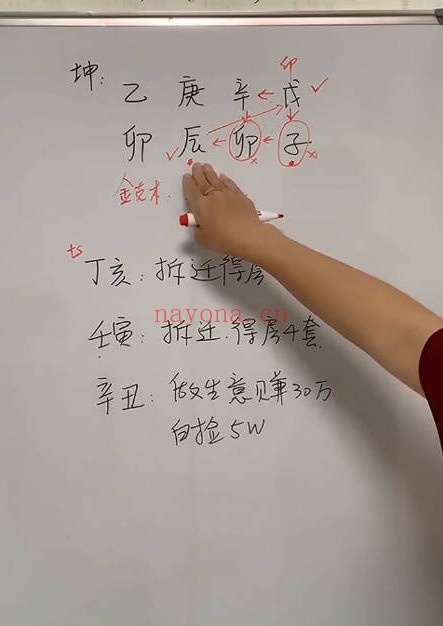 卯
坤: 乙 庚 辛 ← 戊 ✓
卯 ✓ 辰 ← 卯 × ← 子 ×
金克木.
丁亥: 拆迁得房
nayona.cn
壬寅: 拆迁.得房4套.
辛丑: 做生意赚30万
白捡5W